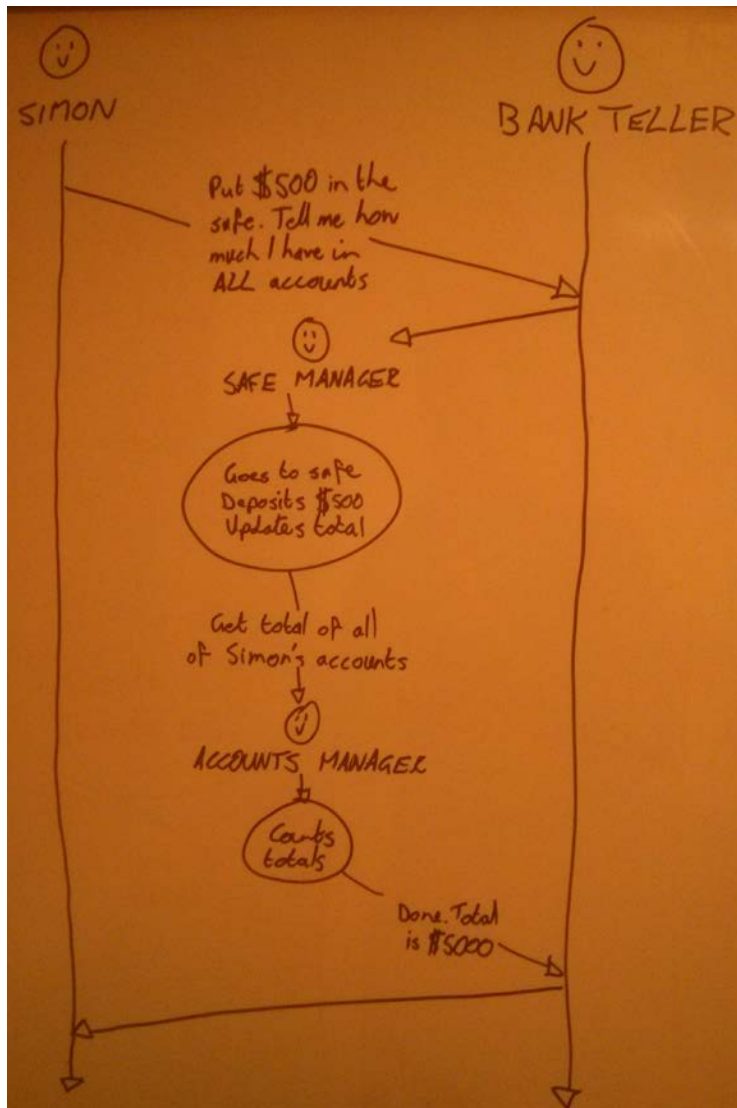 SIMON
BANK TELLER
Put $500 in the
safe. Tell me how
much I have in
ALL accounts
SAFE MANAGER
Goes to safe
Deposits $500
Updates total
Get total of all
of Simon's accounts
ACCOUNTS MANAGER
Counts
totals
Done. Total
is $5000